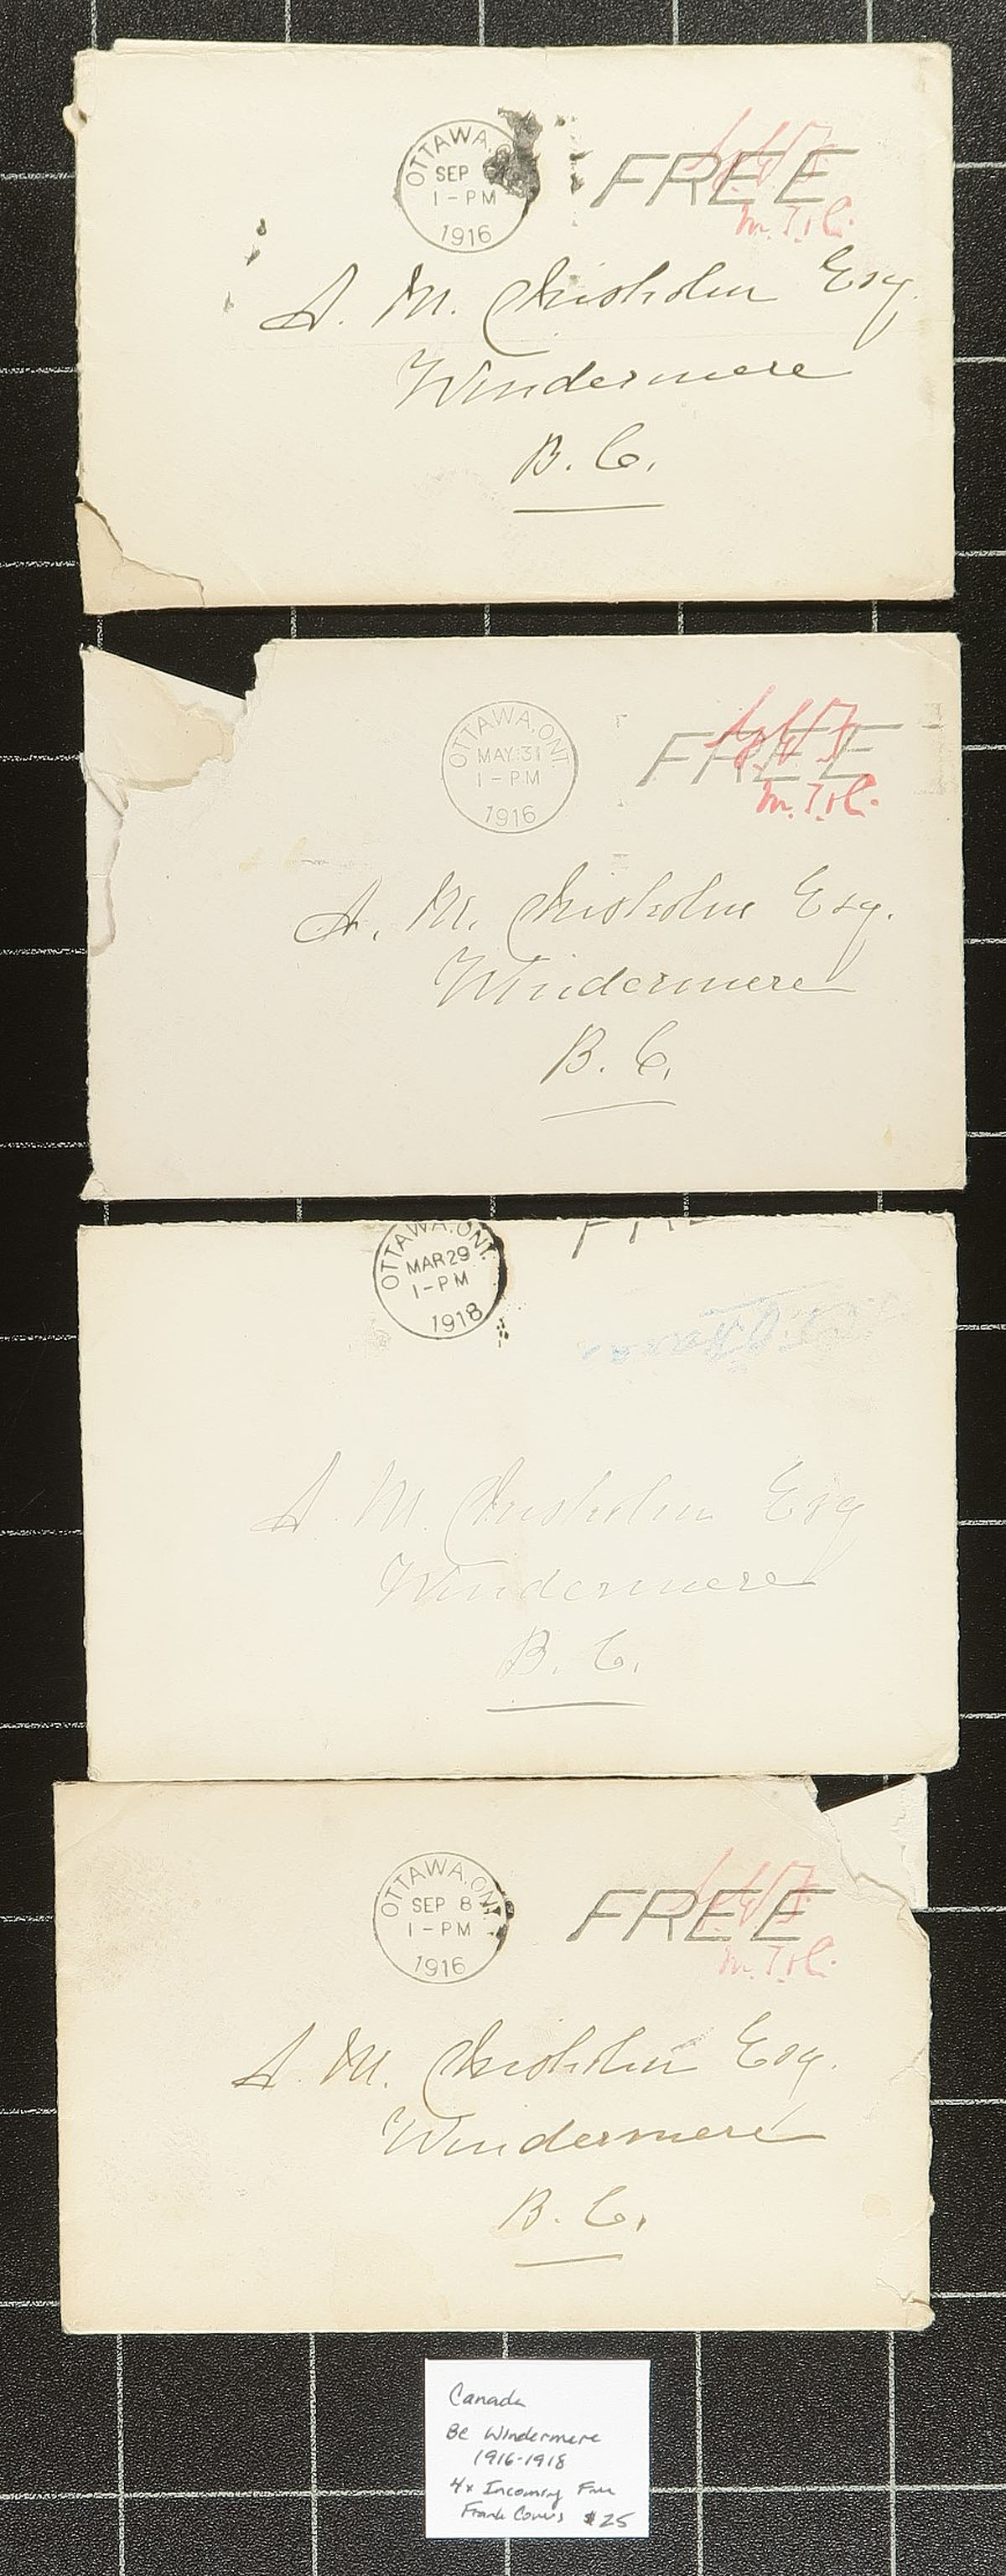 OTTAWA, O
SEP
1-PM
1916
FREE
M.T.C.
A. M. Chisholm Esq.
Windermere
B. C.
OTTAWA, ONT.
MAY 31
1-PM
1916
FREE
M.T.C.
A. M. Chisholm Esq.
Windermere
B. C.
OTTAWA, ONT.
MAR 29
1-PM
1918
A. M. Chisholm Esq
Windermere
B. C.
OTTAWA, ONT.
SEP 8
1-PM
1916
FREE
M.T.C.
A. M. Chisholm Esq.
Windermere
B. C.
Canada
BC Windermere
1916-1918
4x Incoming Free
Frank Covers $25